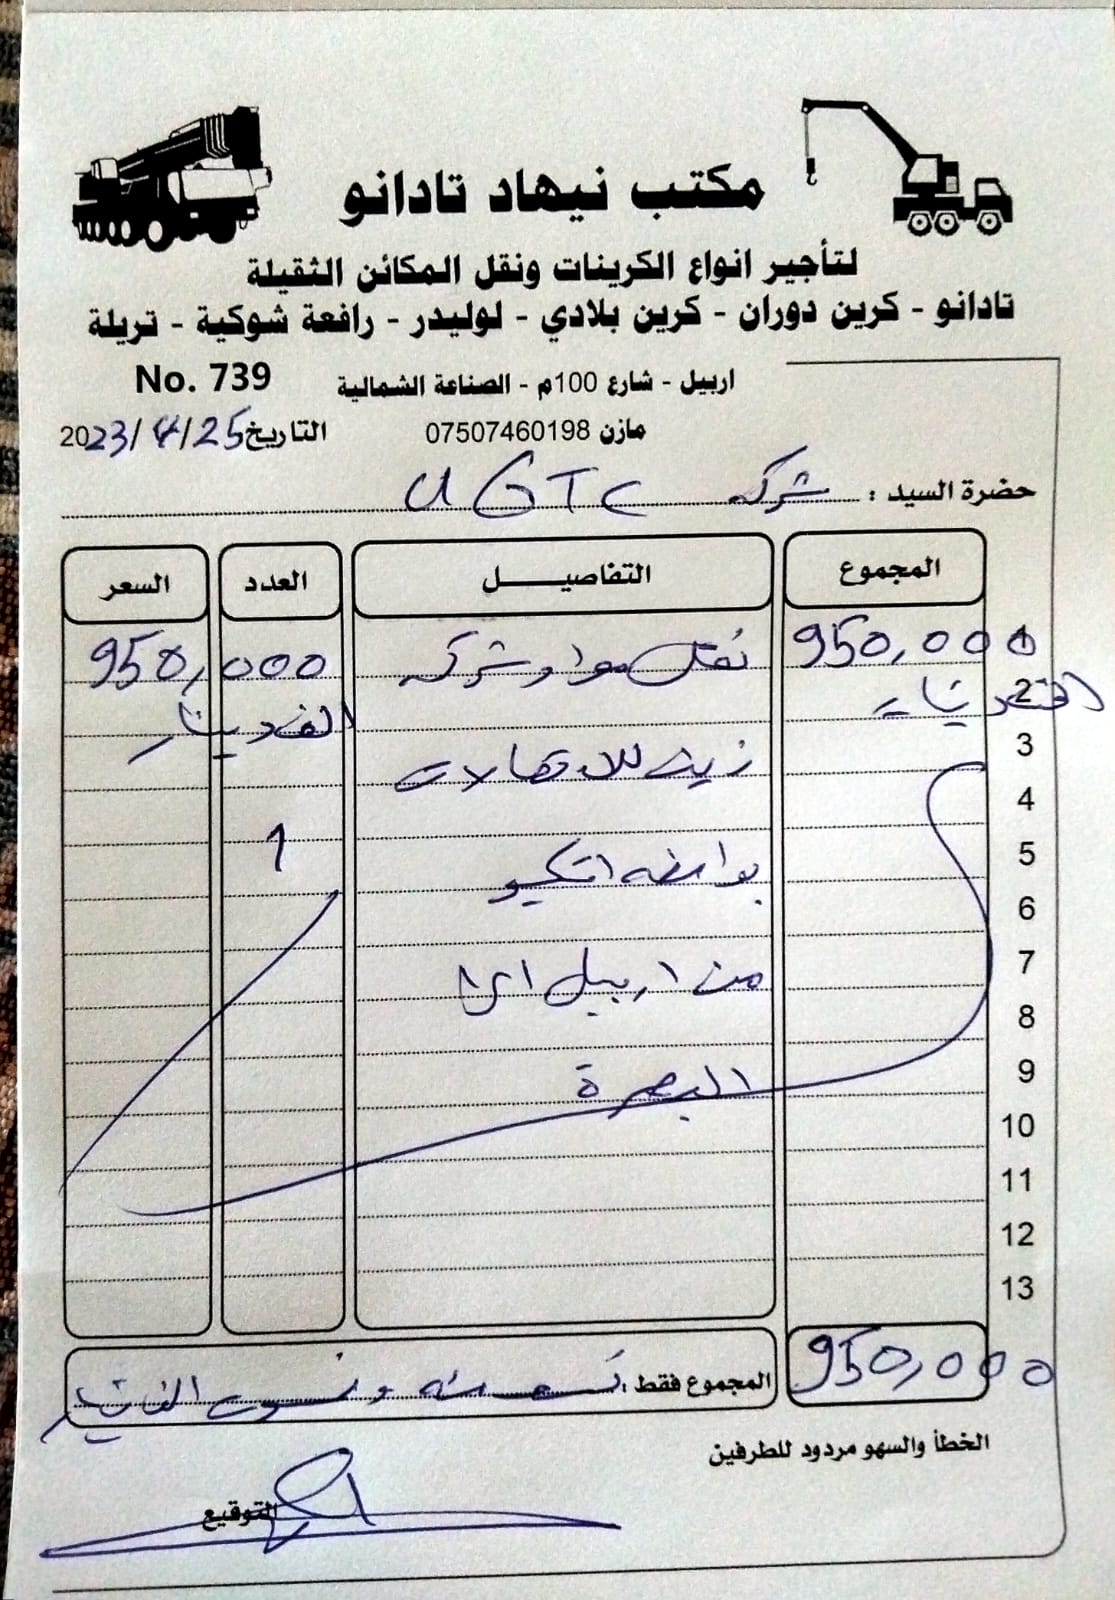 مكتب نيهاد تادانو
لتأجير انواع الكرينات ونقل المكائن الثقيلة
تادانو - كرين دوران - كرين بلادي - لوليدر - رافعة شوكية - تريلة
اربيل - شارع 100م - الصناعة الشمالية
No. 739
مازن 07507460198
التاريخ 2023/4/25
حضرة السيد : شركة UGTC
المجموع التفاصيل العدد السعر
1 950,000 نقل مواد شركة 950,000
2 الف دينار الف دينار
3 زين للاتصالات
4
5 بواسطه 1
6
7 من اربيل الى
8
9 البصرة
10
11
12
13
950,000 المجموع فقط : تسعمئه وخمسون الف دينار
الخطأ والسهو مردود للطرفين
التوقيع